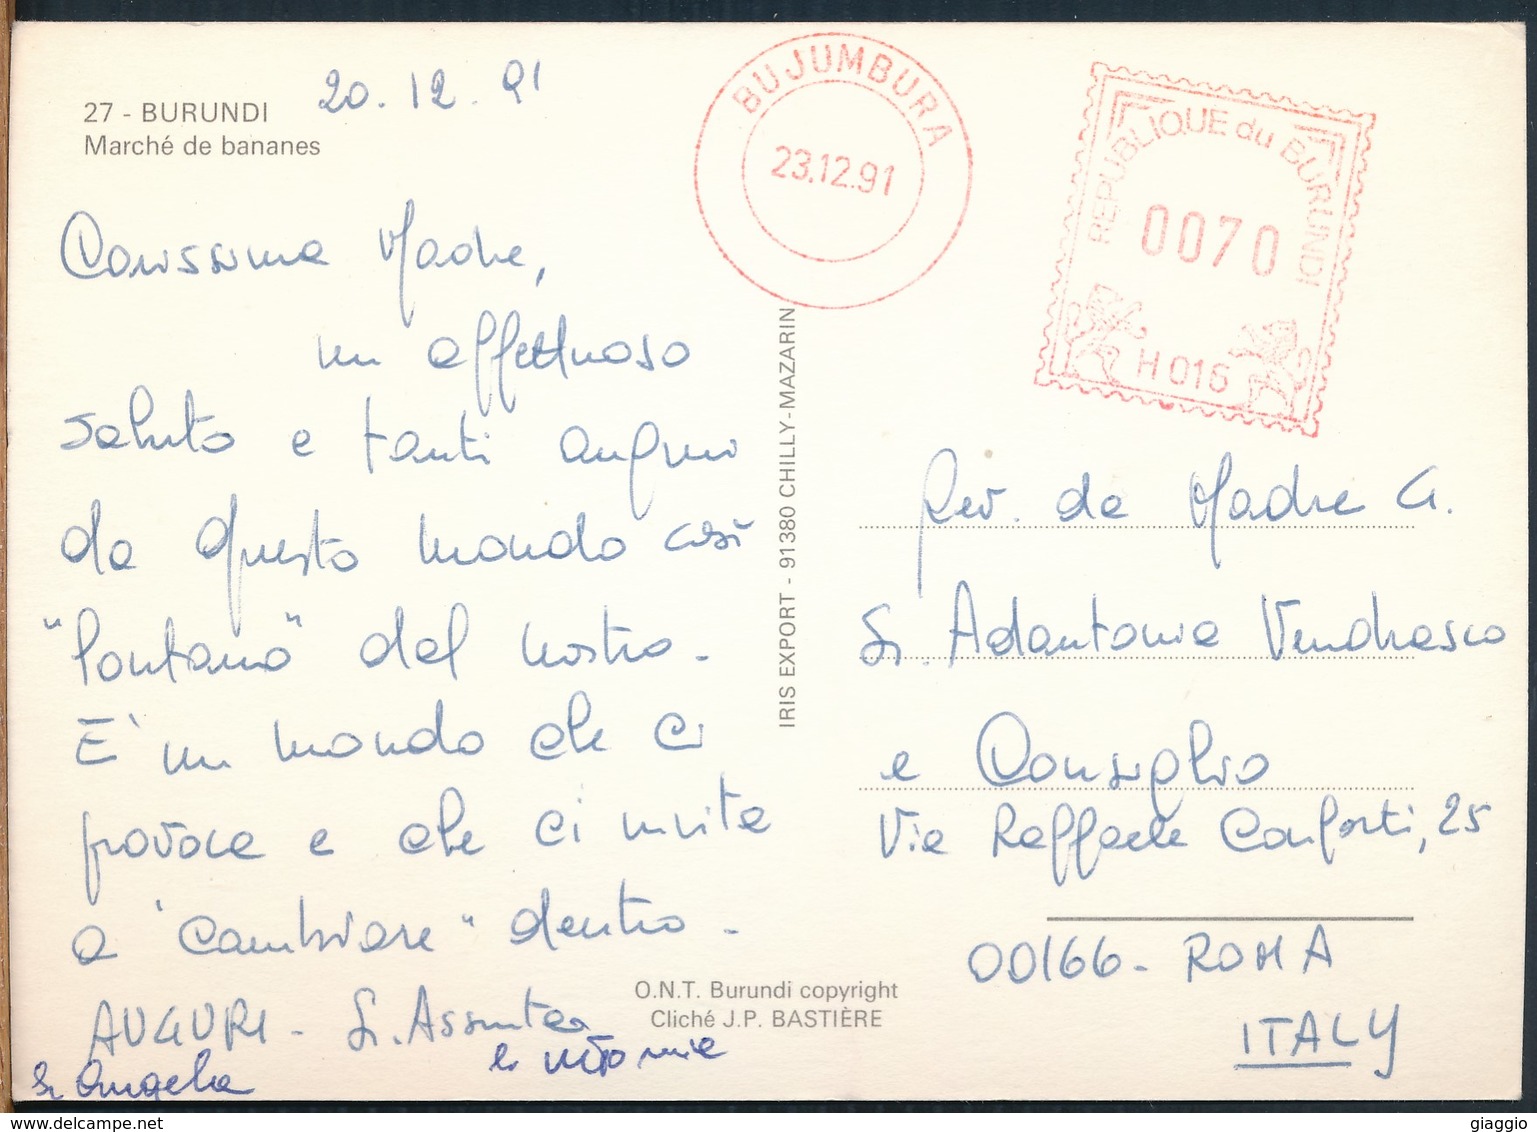 27 - BURUNDI
Marché de bananes
20.12.91
BUJUMBURA
23.12.91
REPUBLIQUE du BURUNDI
0070
H 016
Carissima Madre,
un affettuoso
saluto e tanti auguri
da questo mondo così
"lontano" dal nostro.
E' un mondo che ci
provoca e che ci invita
a "cambiare" dentro.
AUGURI - Sr. Assunta
Sr Angela
IRIS EXPORT - 91380 CHILLY-MAZARIN
O.N.T. Burundi copyright
Cliché J.P. BASTIÈRE
Rev. da Madre G.
Sr. Adantonia Vendrasco
e Consiglio
Via Raffaele Conforti, 25
00166 - ROMA
ITALY
delcampe.net
giaggio